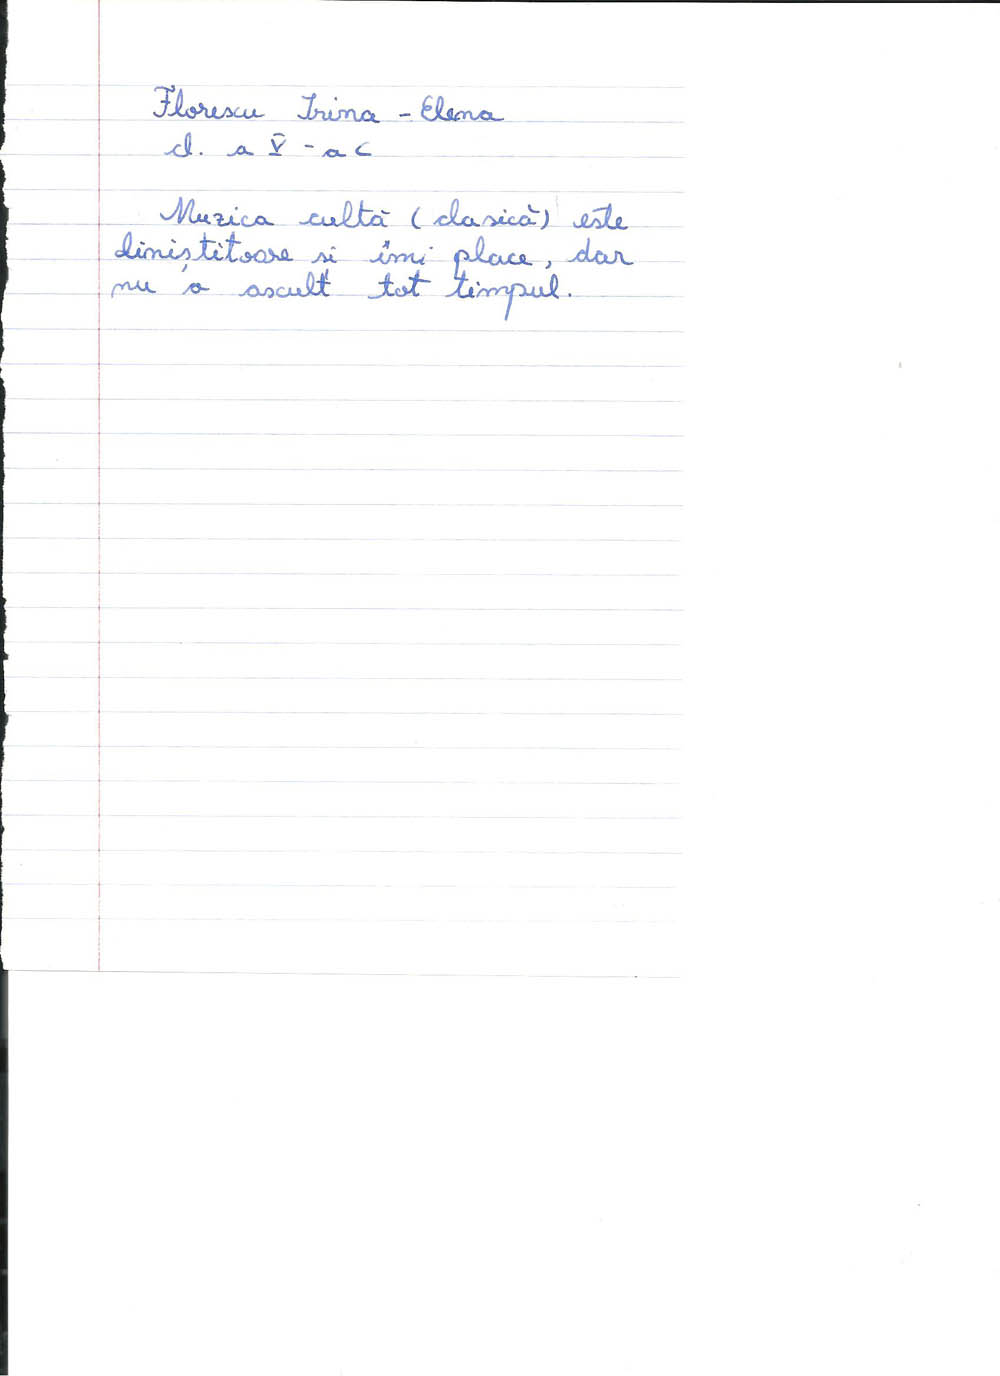 Florescu Irina - Elena
cl. a V - a C
Muzica cultă (clasică) este
liniștitoare și îmi place, dar
nu o ascult tot timpul.